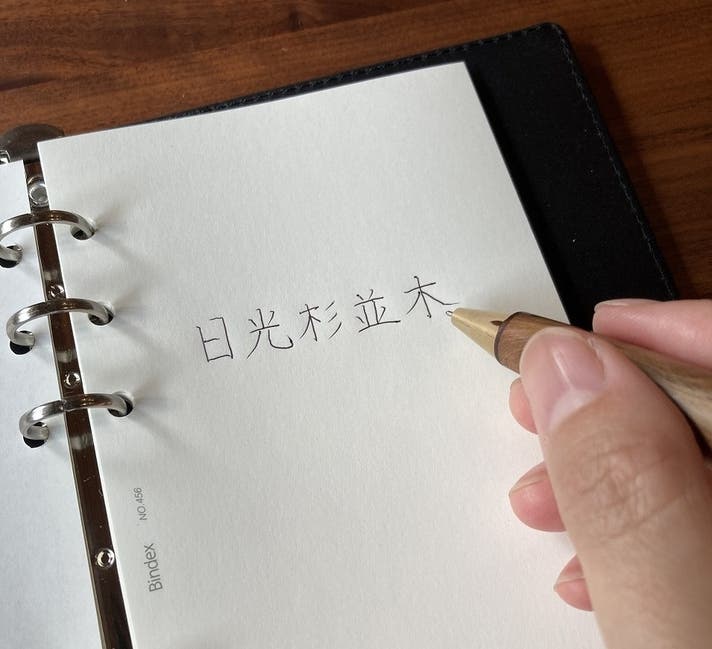 日光杉並木。
Bindex NO.456